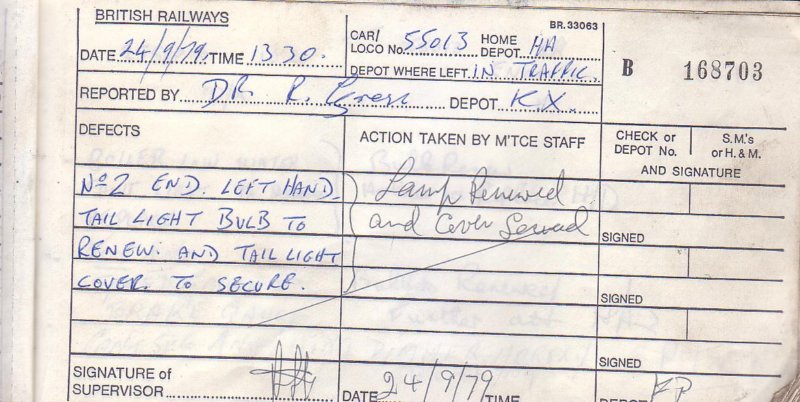 BR.33063
BRITISH RAILWAYS
DATE 24/9/79. TIME 1330.
CAR/ LOCO No. 55013 HOME DEPOT HA
DEPOT WHERE LEFT. IN TRAFFIC.
B 168703
REPORTED BY DR. R. DEPOT K.X.
DEFECTS
ACTION TAKEN BY M'TCE STAFF
CHECK or DEPOT No.
S.M.'s or H. & M.
AND SIGNATURE
No 2 END. LEFT HAND.
TAIL LIGHT BULB TO
RENEW. AND TAIL LIGHT
COVER. TO SECURE.
Lamp Renewed
and Cover Secured
SIGNED
SIGNED
SIGNED
SIGNATURE of SUPERVISOR
DATE 24/9/79 TIME
DEPOT